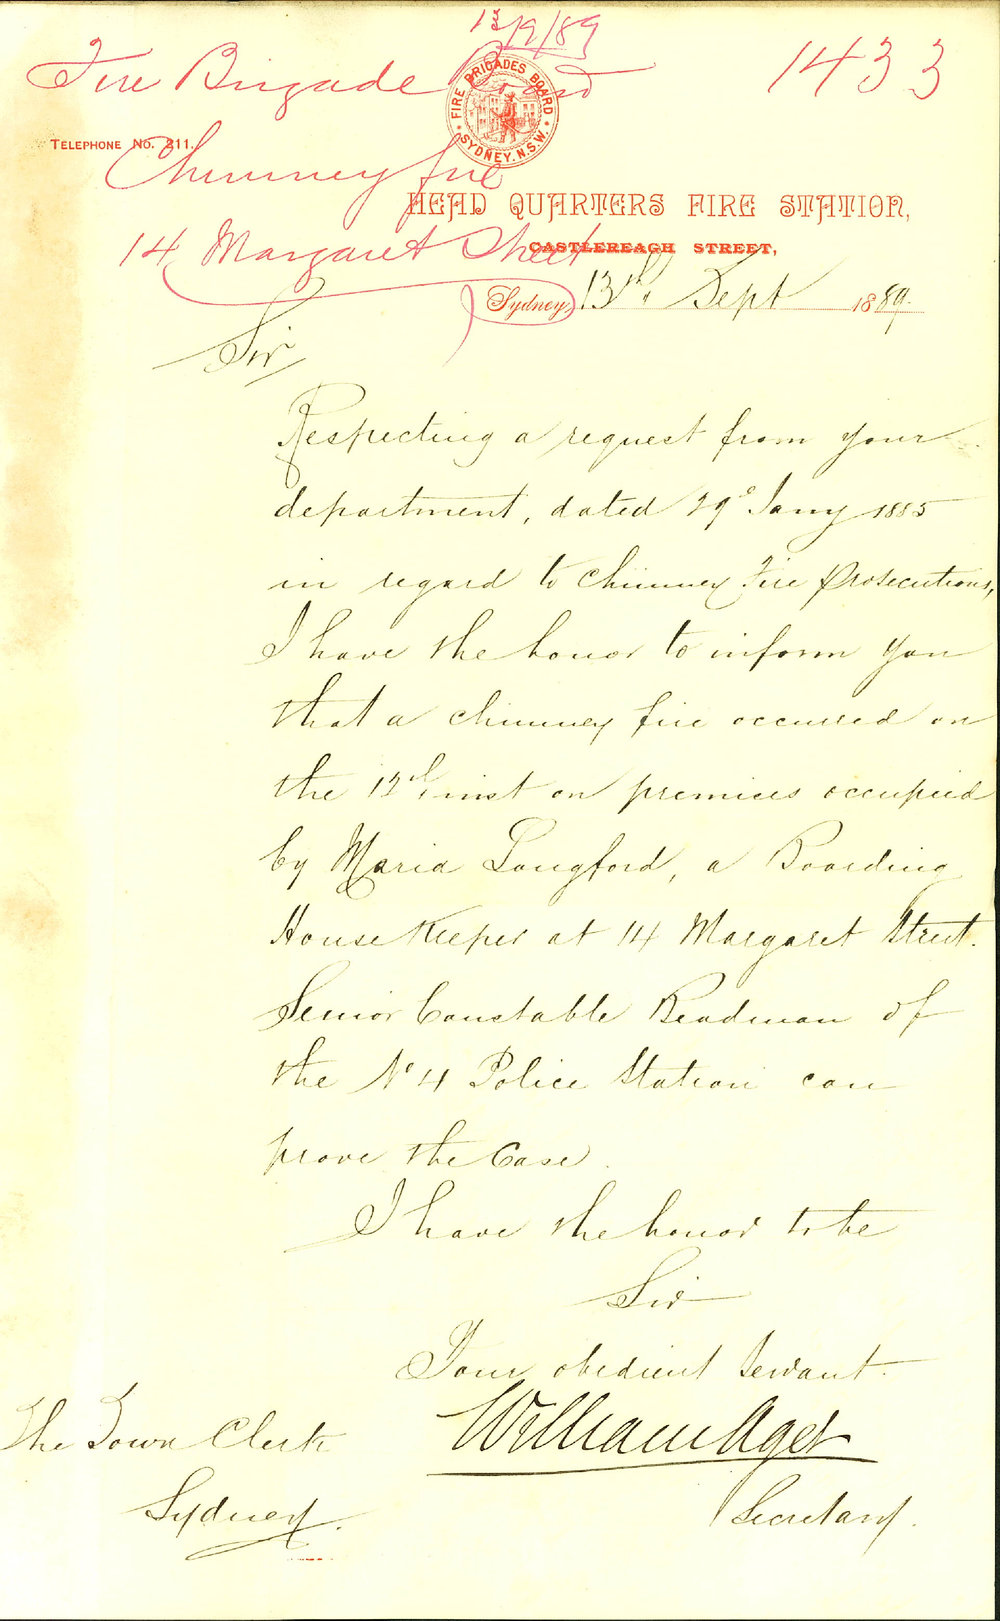 13/9/89
Fire Brigade Board 1433
FIRE BRIGADES BOARD
SYDNEY. N.S.W.
TELEPHONE NO. 211.
Chimney fire
HEAD QUARTERS FIRE STATION,
14 Margaret Street
CASTLEREAGH STREET,
Sydney, 13th Sept 1889.
Sir
Respecting a request from your
department, dated 29th Jany 1885
in regard to Chimney Fire Prosecutions,
I have the honor to inform you
that a chimney fire occurred on
the 12th inst on premises occupied
by Maria Langford, a Boarding
House Keeper at 14 Margaret Street.
Senior Constable Readman of
the No 4 Police Station can
prove the Case.
I have the honor to be
Sir
Your obedient Servant.
The Town Clerk William Ager
Sydney. Secretary.